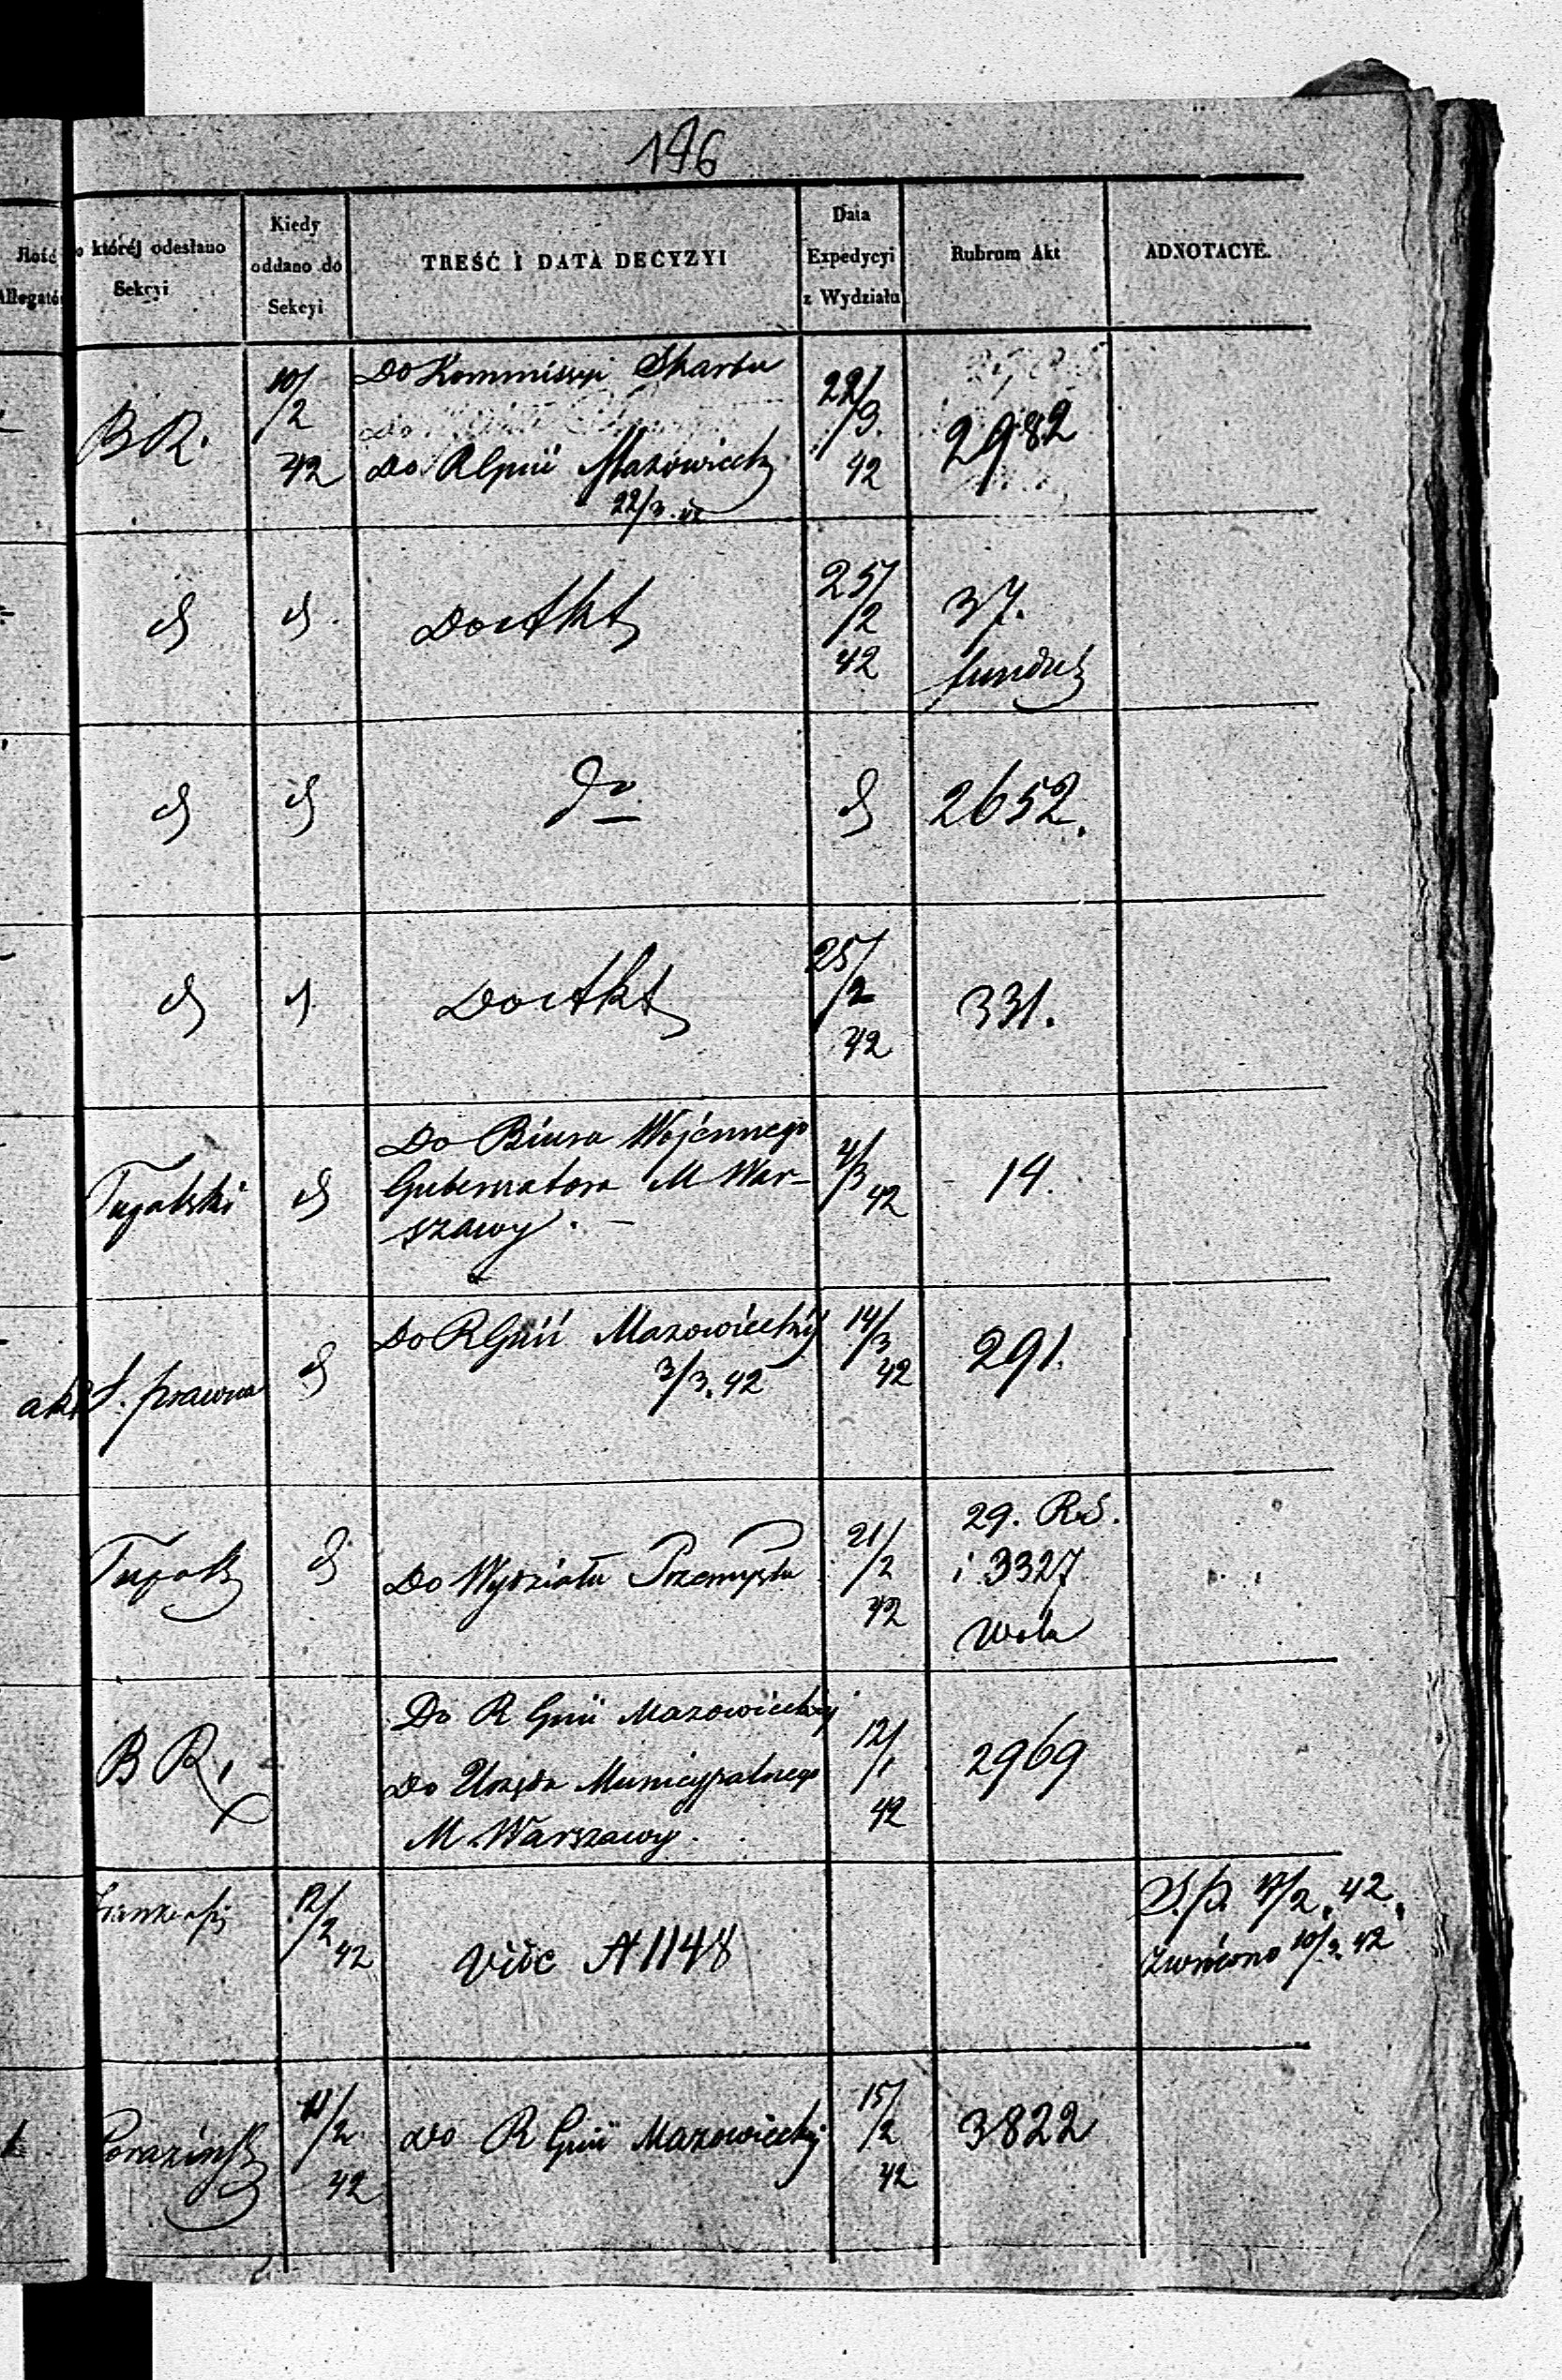 196
Ilość
Allegatów
o któréj odesłano
Sekcyi
Kiedy
oddano do
Sekcyi
TREŚĆ I DATA DECYZYI
Data
Expedycyi
z Wydziału
Rubrum Akt
ADNOTACYE.
BR.
10/2
42
Do Kommissyi Skarbu
Do RGnii Mazowieckiej
22/3 42
22/3
42
2982
d
d
Do Akt
25/2
42
37.
fundusz
d
d
do
d
2652.
d
d
Do Akt
25/2
42
331.
d
Do Biura Wojennego
Gubernatora M War-
szawy. —
4/3 42
14.
akt
S. prawna
d
Do RGnii Mazowieckiej
3/3. 42
14/3
42
291.
d
Do Wydziału Przemysłu
21/2
42
29. R.S.
i 3327
Wola
B R.
Do R Gnii Mazowieckiej
Do Urzędu Municypalnego
M. Warszawy.
12/1
42
2969
12/2
42
vide N 1148
S.p. 17/2. 42.
zwrócono 10/3 42
11/2
42
do R Gnii Mazowieckiej
15/2
42
3822